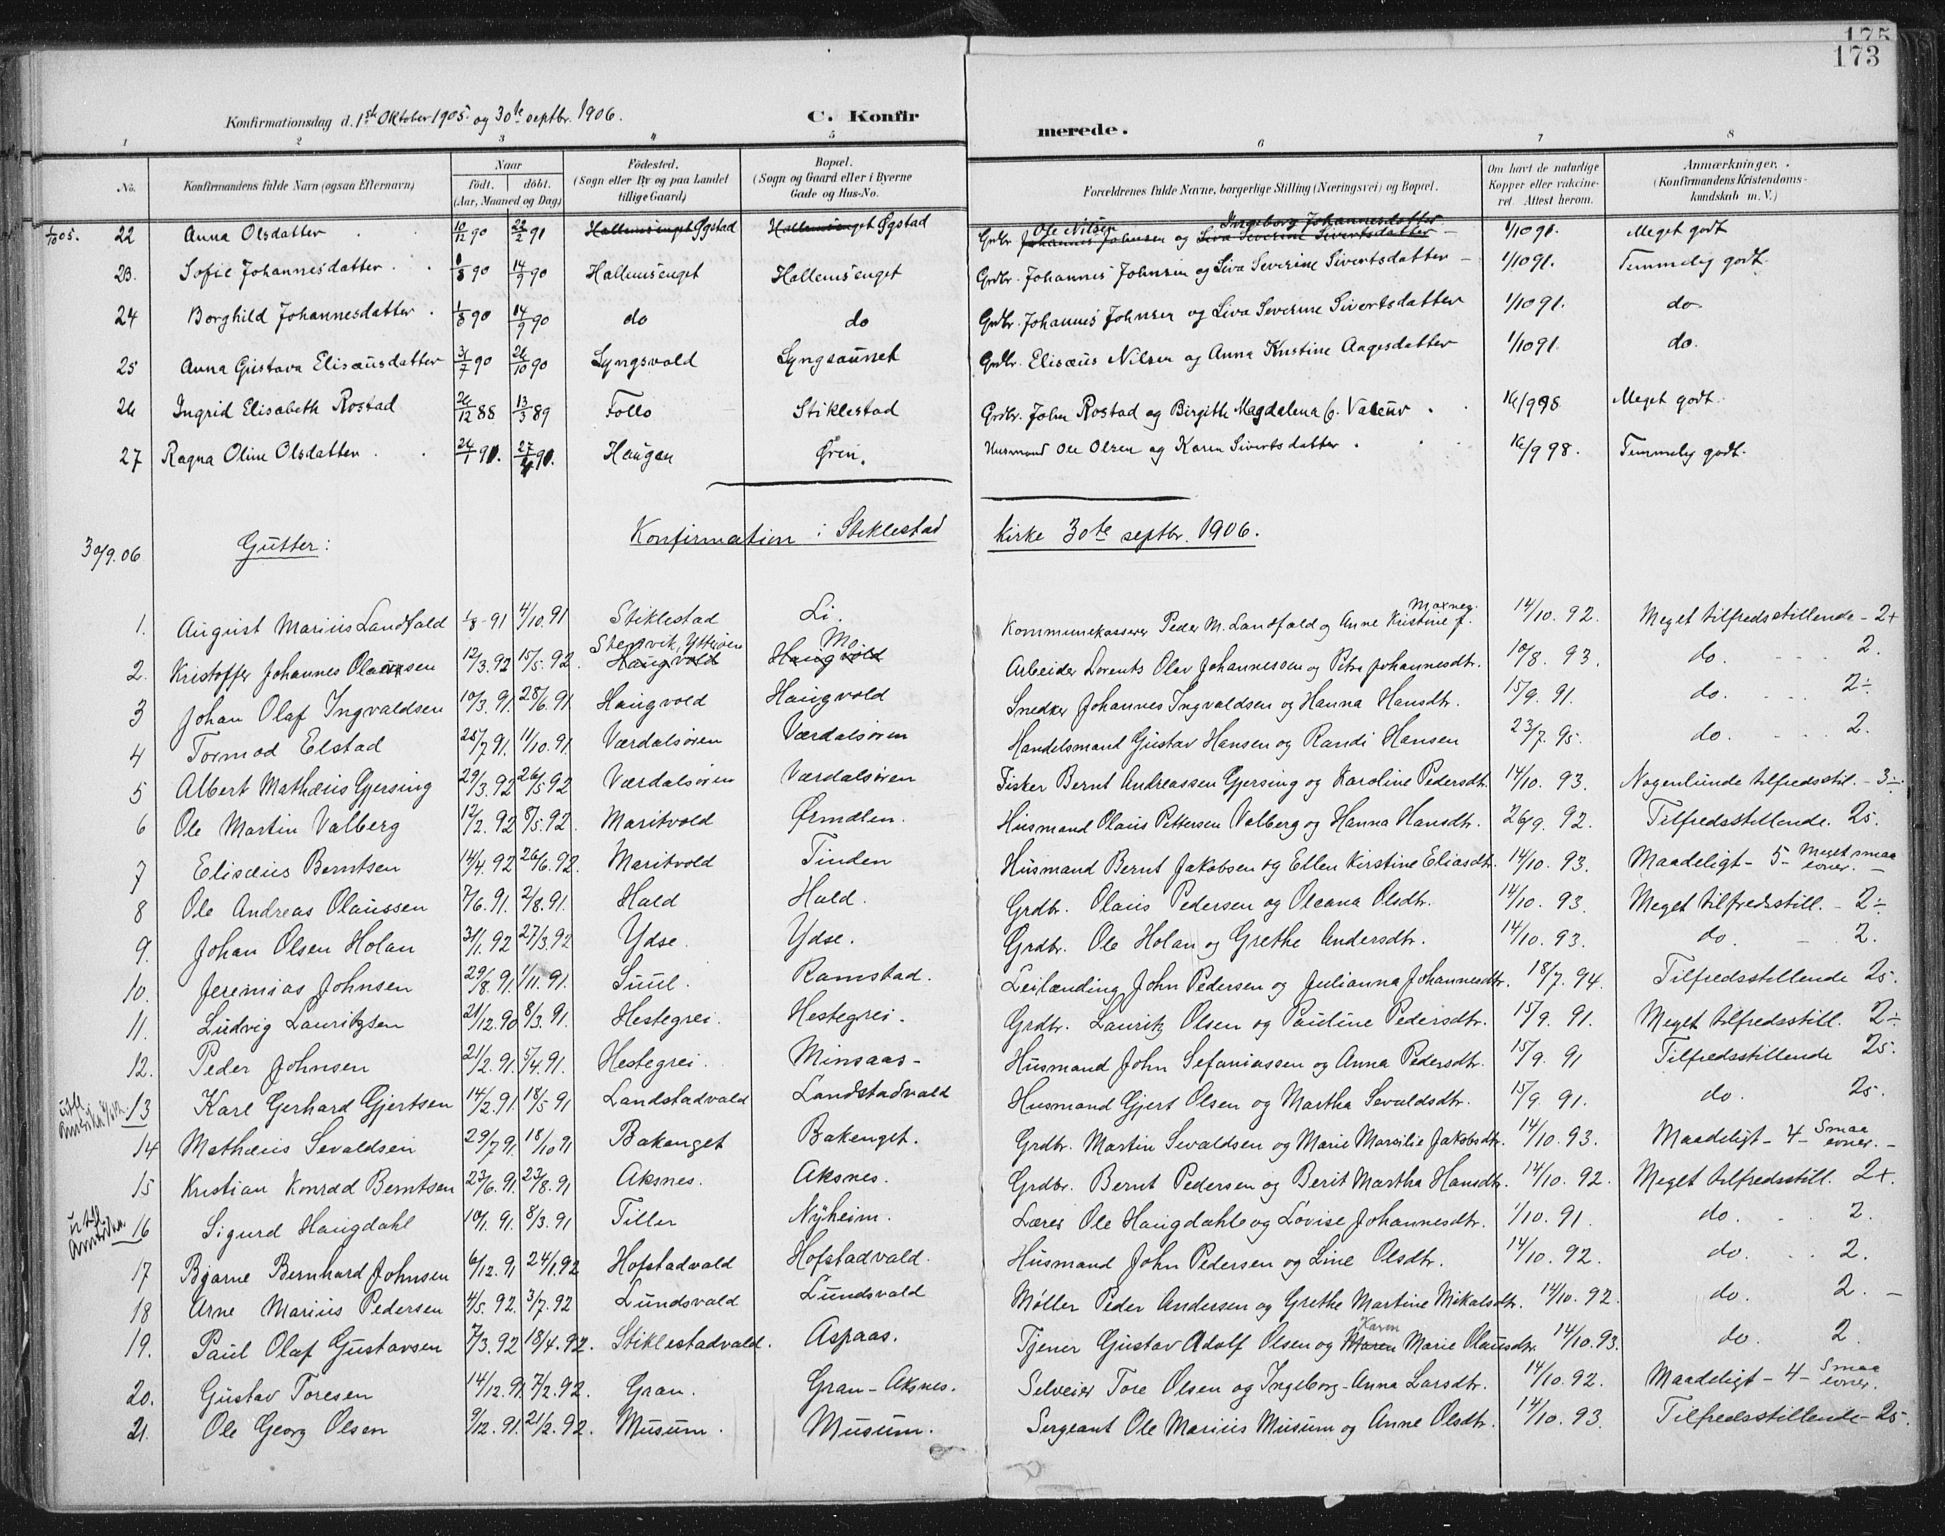 175
173
Konfirmationsdag d. 1ste Oktober 1905. og 30te septbr. 1906. C. Konfirmerede.
1 2 3 4 5 6 7 8
No. Konfirmandens fulde Navn (ogsaa Efternavn) Naar født. døbt. (Aar, Maaned og Dag) Fødested. (Sogn eller By og paa Landet tillige Gaard) Bopæl. (Sogn og Gaard eller i Byerne Gade og Hus-No. Forældrenes fulde Navne, borgerlige Stilling (Næringsvei) og Bopæl. Om havt de naturlige Kopper eller vakcineret. Attest herom. Anmærkninger. (Konfirmandens Kristendomskundskab m. V.)
1/10 05. 22 Anna Olsdatter 10/12 90 22/2 91 Hallemsenget Øgstad Hallemsenget Øgstad Grdbr. Johannes Johnsen Ole Nilsen og Siva Severine Sivertsdatter Ingeborg Johannesdatter 1/10 91. Meget godt
23. Sofie Johannesdatter 1/8 90 14/9 90 Hallemsenget Hallemsenget Grdbr. Johannes Johnsen og Siva Severine Sivertsdatter 1/10 91. Temmelig godt.
24 Borghild Johannesdatter 1/8 90 14/9 90 do do Grdbr. Johannes Johnsen og Siva Severine Sivertsdatter 1/10 91. do.
25 Anna Gustava Elisæusdatter 31/7 90 26/10 90 Lyngsvold Lyngsaunet Grdbr. Elisæus Nilsen og Anna Kristine Aagesdatter 1/10 91. do.
26 Ingrid Elisabeth Rostad 26/12 88 13/3 89 Follo Stiklestad Grdbr. John Rostad og Birgithe Magdalena C. Valeur 16/9 98 Meget godt.
27 Ragna Oline Olsdatter 24/1 91. 27/4 90. Haugan Ørin. Husmand Ole Olsen og Karen Sivertsdatter 16/9 98. Temmelig godt.
30/9.06 Gutter: Konfirmation i Stiklestad Kirke 30te septbr. 1906.
1. August Marius Landfald 1/8-91 4/10.91 Stiklestad Li. Kommunekasserer Peder M. Landfald og Anne Kristine f. 14/10. 92. Meget tilfredsstillende - 2+
2. Kristoffer Johannes Olaussen 12/3.92 15/5.92. Haugvold Stensvik, Ytterøen Haugvold Mo Arbeider Lorents Olav Johannessen og Petra Johannesdtr. 10/8. 93. do. 2.
3 Johan Olaf Ingvaldsen 10/3.91. 28/6.91 Haugvold Haugvold Snedker Johannes Ingvaldsen og Hanna Hansdtr. 15/9. 91. do. 2÷
4 Tormod Elstad 25/7.91. 11/10.91 Værdalsøren Værdalsøren Handelsmand Gustav Hansen og Randi Hansen 23/7. 95. do. 2.
5 Albert Mathæus Gjersing 29/3.92 26/5 92 Værdalsøren Værdalsøren Fisker Bernt Andreassen Gjersing og Karoline Pedersdtr. 14/10. 93. Nogenlunde tilfredsstil. - 3÷
6 Ole Martin Valberg 12/2. 92 8/5.92. Maritvold Ørmelen. Husmand Olaus Pettersen Valberg og Hanna Hansdtr. 26/9. 92. Tilfredsstillende. 25.
7 Elisæus Berntsen 14/4. 92 26/6. 92. Maritvold Tinden Husmand Bernt Jakobsen og Ellen Kirstine Eliasdtr. 14/10. 93. Maadeligt - 5 - Meget smaa evner. -
8 Ole Andreas Olaussen 7/6.91. 2/8.91. Hald Hald. Grdbr. Olaus Pedersen og Oleana Olsdtr. 14/10. 93. Meget tilfredsstill. - 2÷
9. Johan Olsen Holan 31/1.92 27/3.92 Ydse. Ydse. Grdbr. Ole Holan og Grethe Andersdtr. 14/10. 93. do. 2.
10. Jeremias Johnsen 29/8.91 1/11.91. Suul. Ramstad. Leilænding John Pedersen og Julianna Johannesdtr. 18/7. 94. Tilfredsstillende 25.
11. Ludvig Lauritzsen 21/12.90 8/3.91. Hestegrei. Hestegrei. Grdbr. Lauritz Olsen og Pauline Pedersdtr. 15/9. 91. Meget tilfredsstill. 2÷
12. Peder Johnsen 21/2.91. 5/4.91. Hestegrei. Minsaas - Husmand John Sefaniassen og Anna Pedersdtr. 15/9. 91 Tilfredsstillende 25.
utfl. Amerika 13 Karl Gerhard Gjertsen 14/2.91. 18/5 91 Landstadvald Landstadvald Husmand Gjert Olsen og Martha Sevaldsdtr. 15/9. 91. do. 25.
14 Mathæus Sevaldsen 29/7.91. 18/10 91 Bakenget Bakenget. Grdbr. Martin Sevaldsen og Marie Marsilie Jakobsdtr. 14/10. 93. Maadeligt - 4 - Smaa evner. -
15 Kristian Konrad Berntsen 23/6.91. 23/8.91 Aksnes. Aksnes. Grdbr. Bernt Pedersen og Berit Martha Hansdtr. 14/10. 92. Meget tilfredsstill. 2+.
utfl Amerika 16 Sigurd Haugdahl 10/1.91. 8/3.91 Tiller Nyheim. Lærer Ole Haugdahl og Lovise Johannesdtr. 1/10. 91. do. 2.
17 Bjarne Bernhard Johnsen 6/12.91 24/1.92 Hofstadvald Hofstadvald. Husmand John Pedersen og Line Olsdtr. 14/10. 92. do. 2.
18 Arne Marius Pedersen 4/5.92. 3/7.92 Lundsvald Lundsvald Møller Peder Andersen og Grethe Martine Mikalsdtr. 14/10. 92. do. 2. -
19. Paul Olaf Gustavsen 7/3.92 18/4.92. Stiklestadvald. Aspaas. Tjener Gustav Adolf Olsen og Maren Karen Marie Olausdtr. 14/10.93. do. 2.
20. Gustav Toresen 14/12.91. 7/2.92. Gran. Gran - Aksnes. Selveier Tore Olsen og Ingeborg-Anna Larsdtr. 14/10.92. Maadeligt - 4 - Smaa evner.
21. Ole Georg Olsen 9/12.91. 21/2.92. Musum. Musum. Sergeant Ole Marius Musum og Anne Olsdtr. 14/10. 93. Tilfredsstillende - 25.